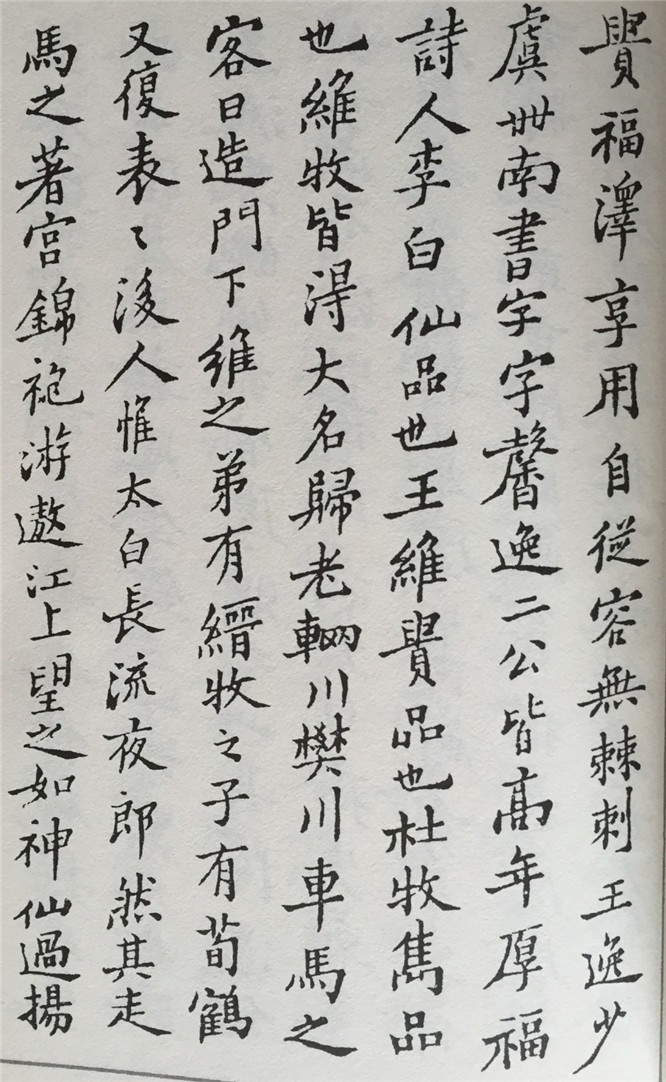 貴福澤享用自從容無棘刺王逸少
虞世南書字字馨逸二公皆高年厚福
詩人李白仙品也王維貴品也杜牧雋品
也維牧皆得大名歸老輞川樊川車馬之
客日造門下維之弟有縉牧之子有荀鶴
又復表〻後人惟太白長流夜郎然其走
馬上著宮錦袍游遨江上望之如神仙過揚